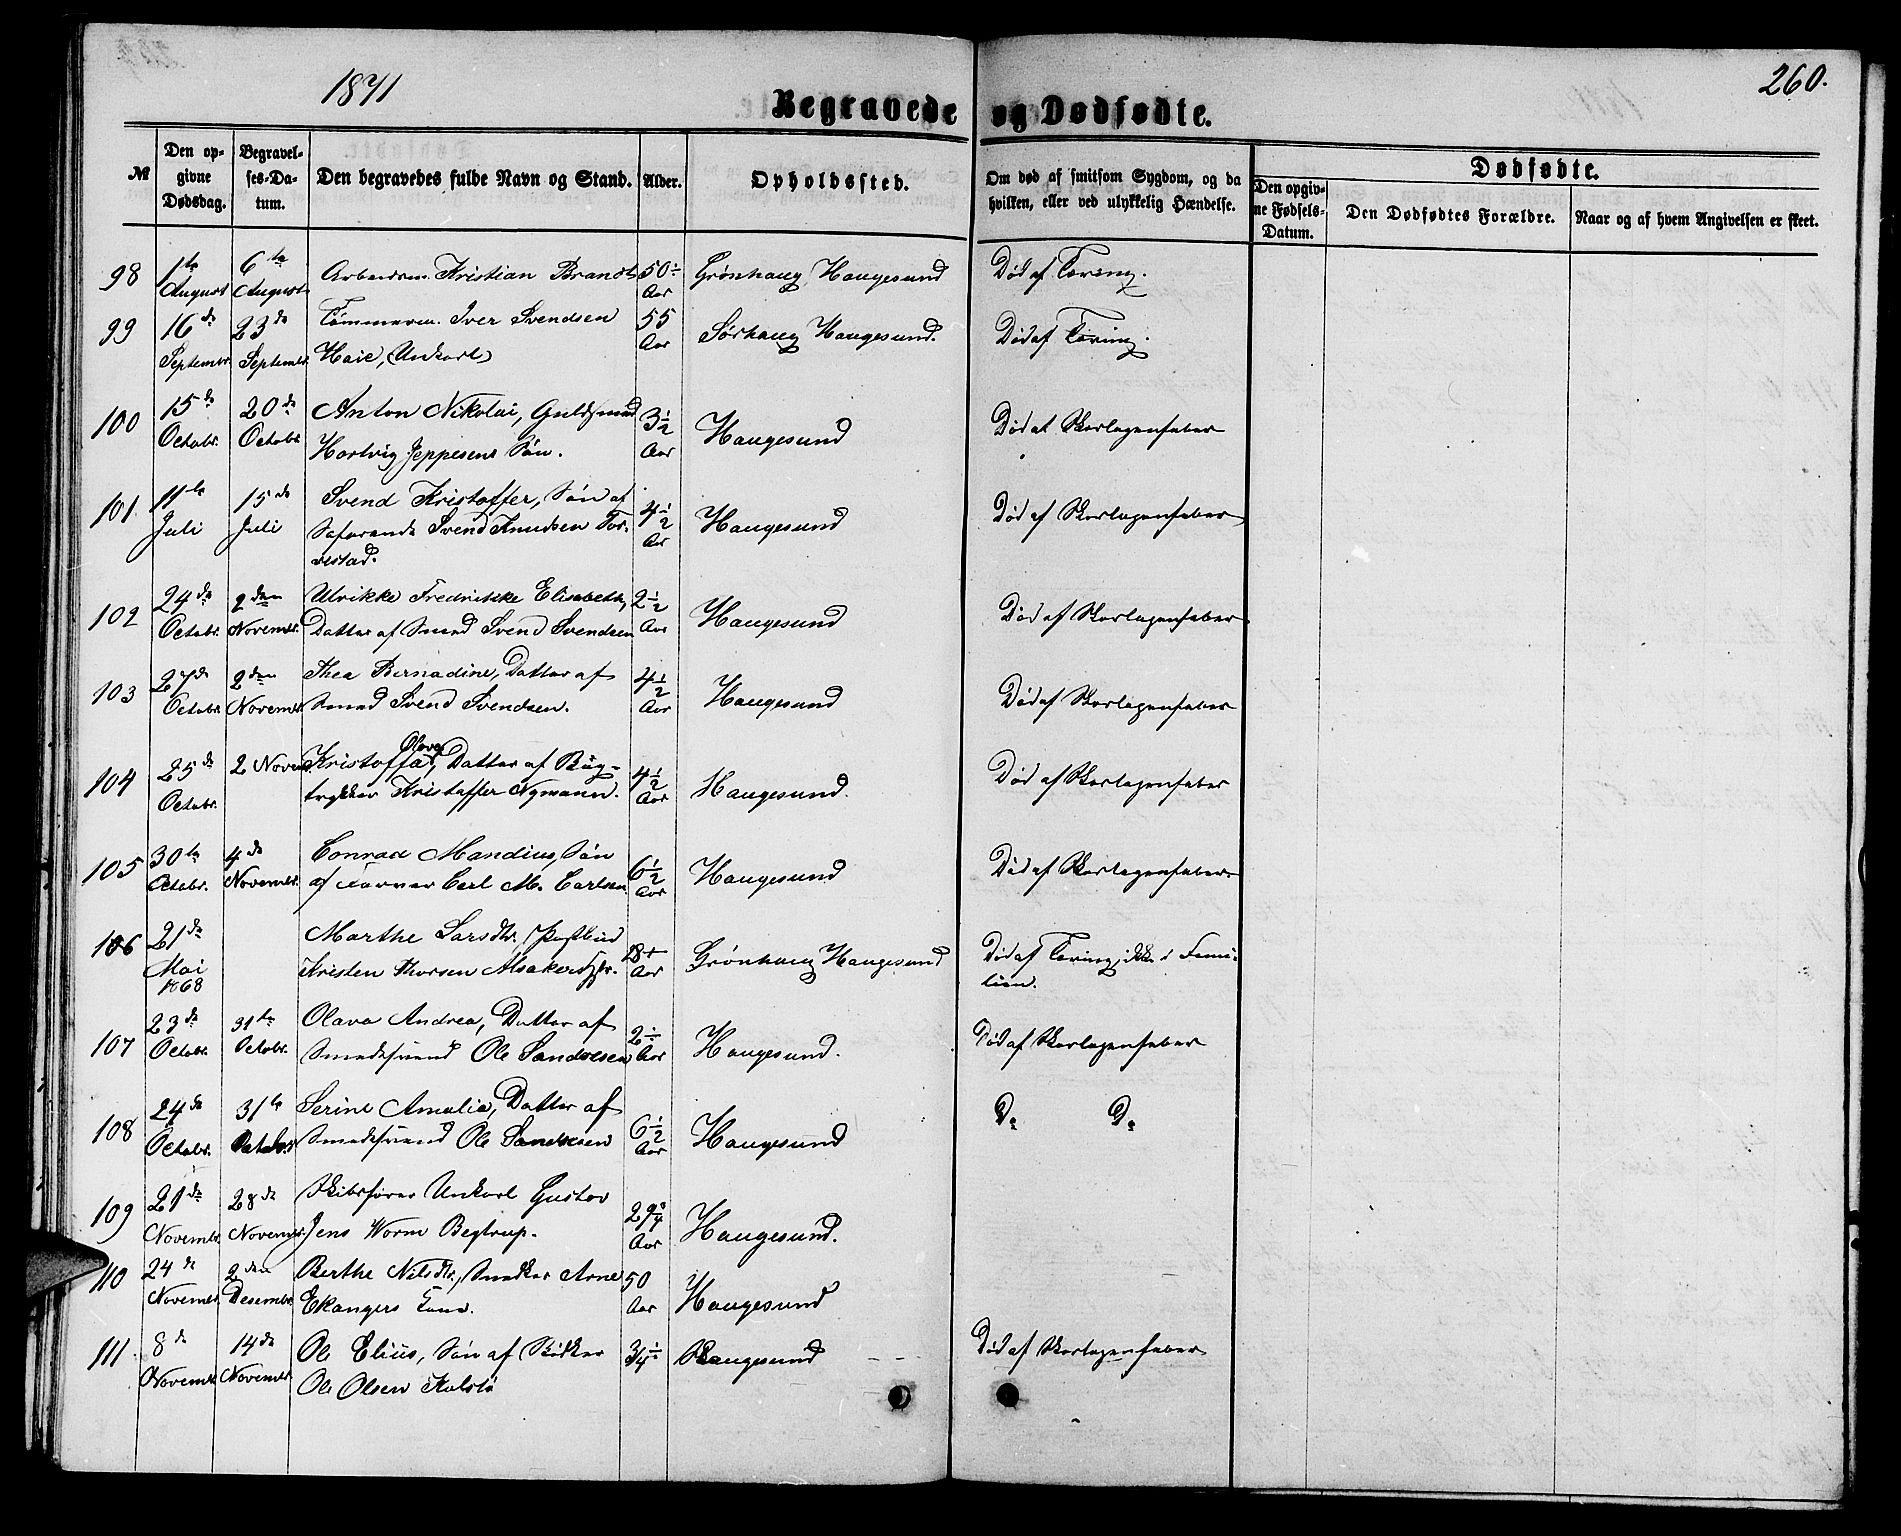 1871
260.
Begravede og Dødfødte.
№
Den opgivne Dødsdag.
Begravelses-Datum.
Den begravedes fulde Navn og Stand.
Alder.
Opholdssted.
Om død af smitsom Sygdom, og da hvilken, eller ved ulykkelig Hændelse.
Dødfødte.
Den opgivne Fødsels-Datum.
Den Dødfødtes Forældre.
Naar og af hvem Angivelsen er skeet.
98 1ste August 6te August Arbeidsm. Kristian Brandt 50 Aar Grønhaug, Haugesund Død af Tæring.
99 16de Septembr. 23de Septembr. Tømmerm. Iver Svendsen
Haie, (Unkarl) 55 Aar Sørhaug Haugesund. Død af Tæring.
100 15de Octobr. 20de Octobr. Anton Nikolai, Guldsmed
Hartvig Jeppesens Søn. 3½ Aar Haugesund Død af Skarlagensfeber
101. 11te Juli 15de Juli Svend Kristoffer, Søn af
Søfarende Svend Knudsen Tor-
vestad. 4½ Aar Haugesund Død af Skarlagensfeber
102 24de Octobr. 2den Novembr. Ulrikke Fredrikke Elisabeth,
Datter af Smed Svend Svendsen 2½ Aar Haugesund Død af Skarlagensfeber.
103 27de Octobr. 2den Novembr. Thea Bernadine, Datter af
Smed Svend Svendsen. 4½ Aar Haugesund Død af Skarlagensfeber
104 25de Octobr. 2 Novembr. Kristoffa Olava, Datter af Bog-
trykker Kristoffer Nymann. 4½ Aar Haugesund. Død af Skarlagensfeber
105 30te Octobr. 4de Novembr. Conrad Mandius, Søn
af Farver Carl M. Carlsen 6½ Aar Haugesund Død af Skarlagensfeber.
106 21de Mai 1868 Marthe Larsdtr, Postbud
Kristen Thorsen Alsakers 28 Aar Grønhaug Haugesund Død af Tæring, ikke i Fami-
lien.
107 23de Octobr. 31te Octobr. Olava Andrea, Datter af
Smedesvend Ole Sandvesen 2 Aar Haugesund. Død af Skarlagensfeber
108 24de Octobr. 31te Octobr. Serine Amalia, Datter af
Smedesvend Ole Sandvesen 6½ Aar Haugesund Do Do
109 21de Novembr. 28de Novembr. Skibsfører Unkarl Gustav
Jens Worm Begtrup. 29¾ Aar Haugesund.
110 24de Novembr. 2den Desembr. Berthe Nilsdtr, Snedker Arne
Ekangers Kone. 50 Aar Haugesund
111. 8de Novembr. 14de Novembr. Ole Elius, Søn af Bødker
Ole Olsen Kalstø 3¼ Haugesund Død af Skarlagensfeber